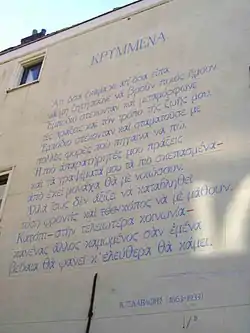 ΚΡΥΜΜΕΝΑ
Απ' όσα έκαμα κι απ' όσα είπα
να μη ζητήσουνε να βρουν ποιος ήμουν.
Εμπόδιο στέκονταν και μεταμόρφωνε
τες πράξεις και τον τρόπο της ζωής μου.
Εμπόδιο στέκονταν και σταματούσε με
πολλές φορές που πήγαινα να πω.
Η πιο απαρατήρητές μου πράξεις
και τα γραψίματά μου τα πιο σκεπασμένα—
από εκεί μονάχα θα με νιώσουν.
Άλλα ίσως δεν αξίζει να καταβληθεί
τόση φροντίς και τόσος κόπος να με μάθουν.
Κατόπι— στην τελειοτέρα κοινωνία—
κανένας άλλος καμωμένος σαν εμένα
βέβαια θα φανεί κ' ελεύθερα θα κάμει.
Κ. Π. ΚΑΒΑΦΗΣ (1863-1933)